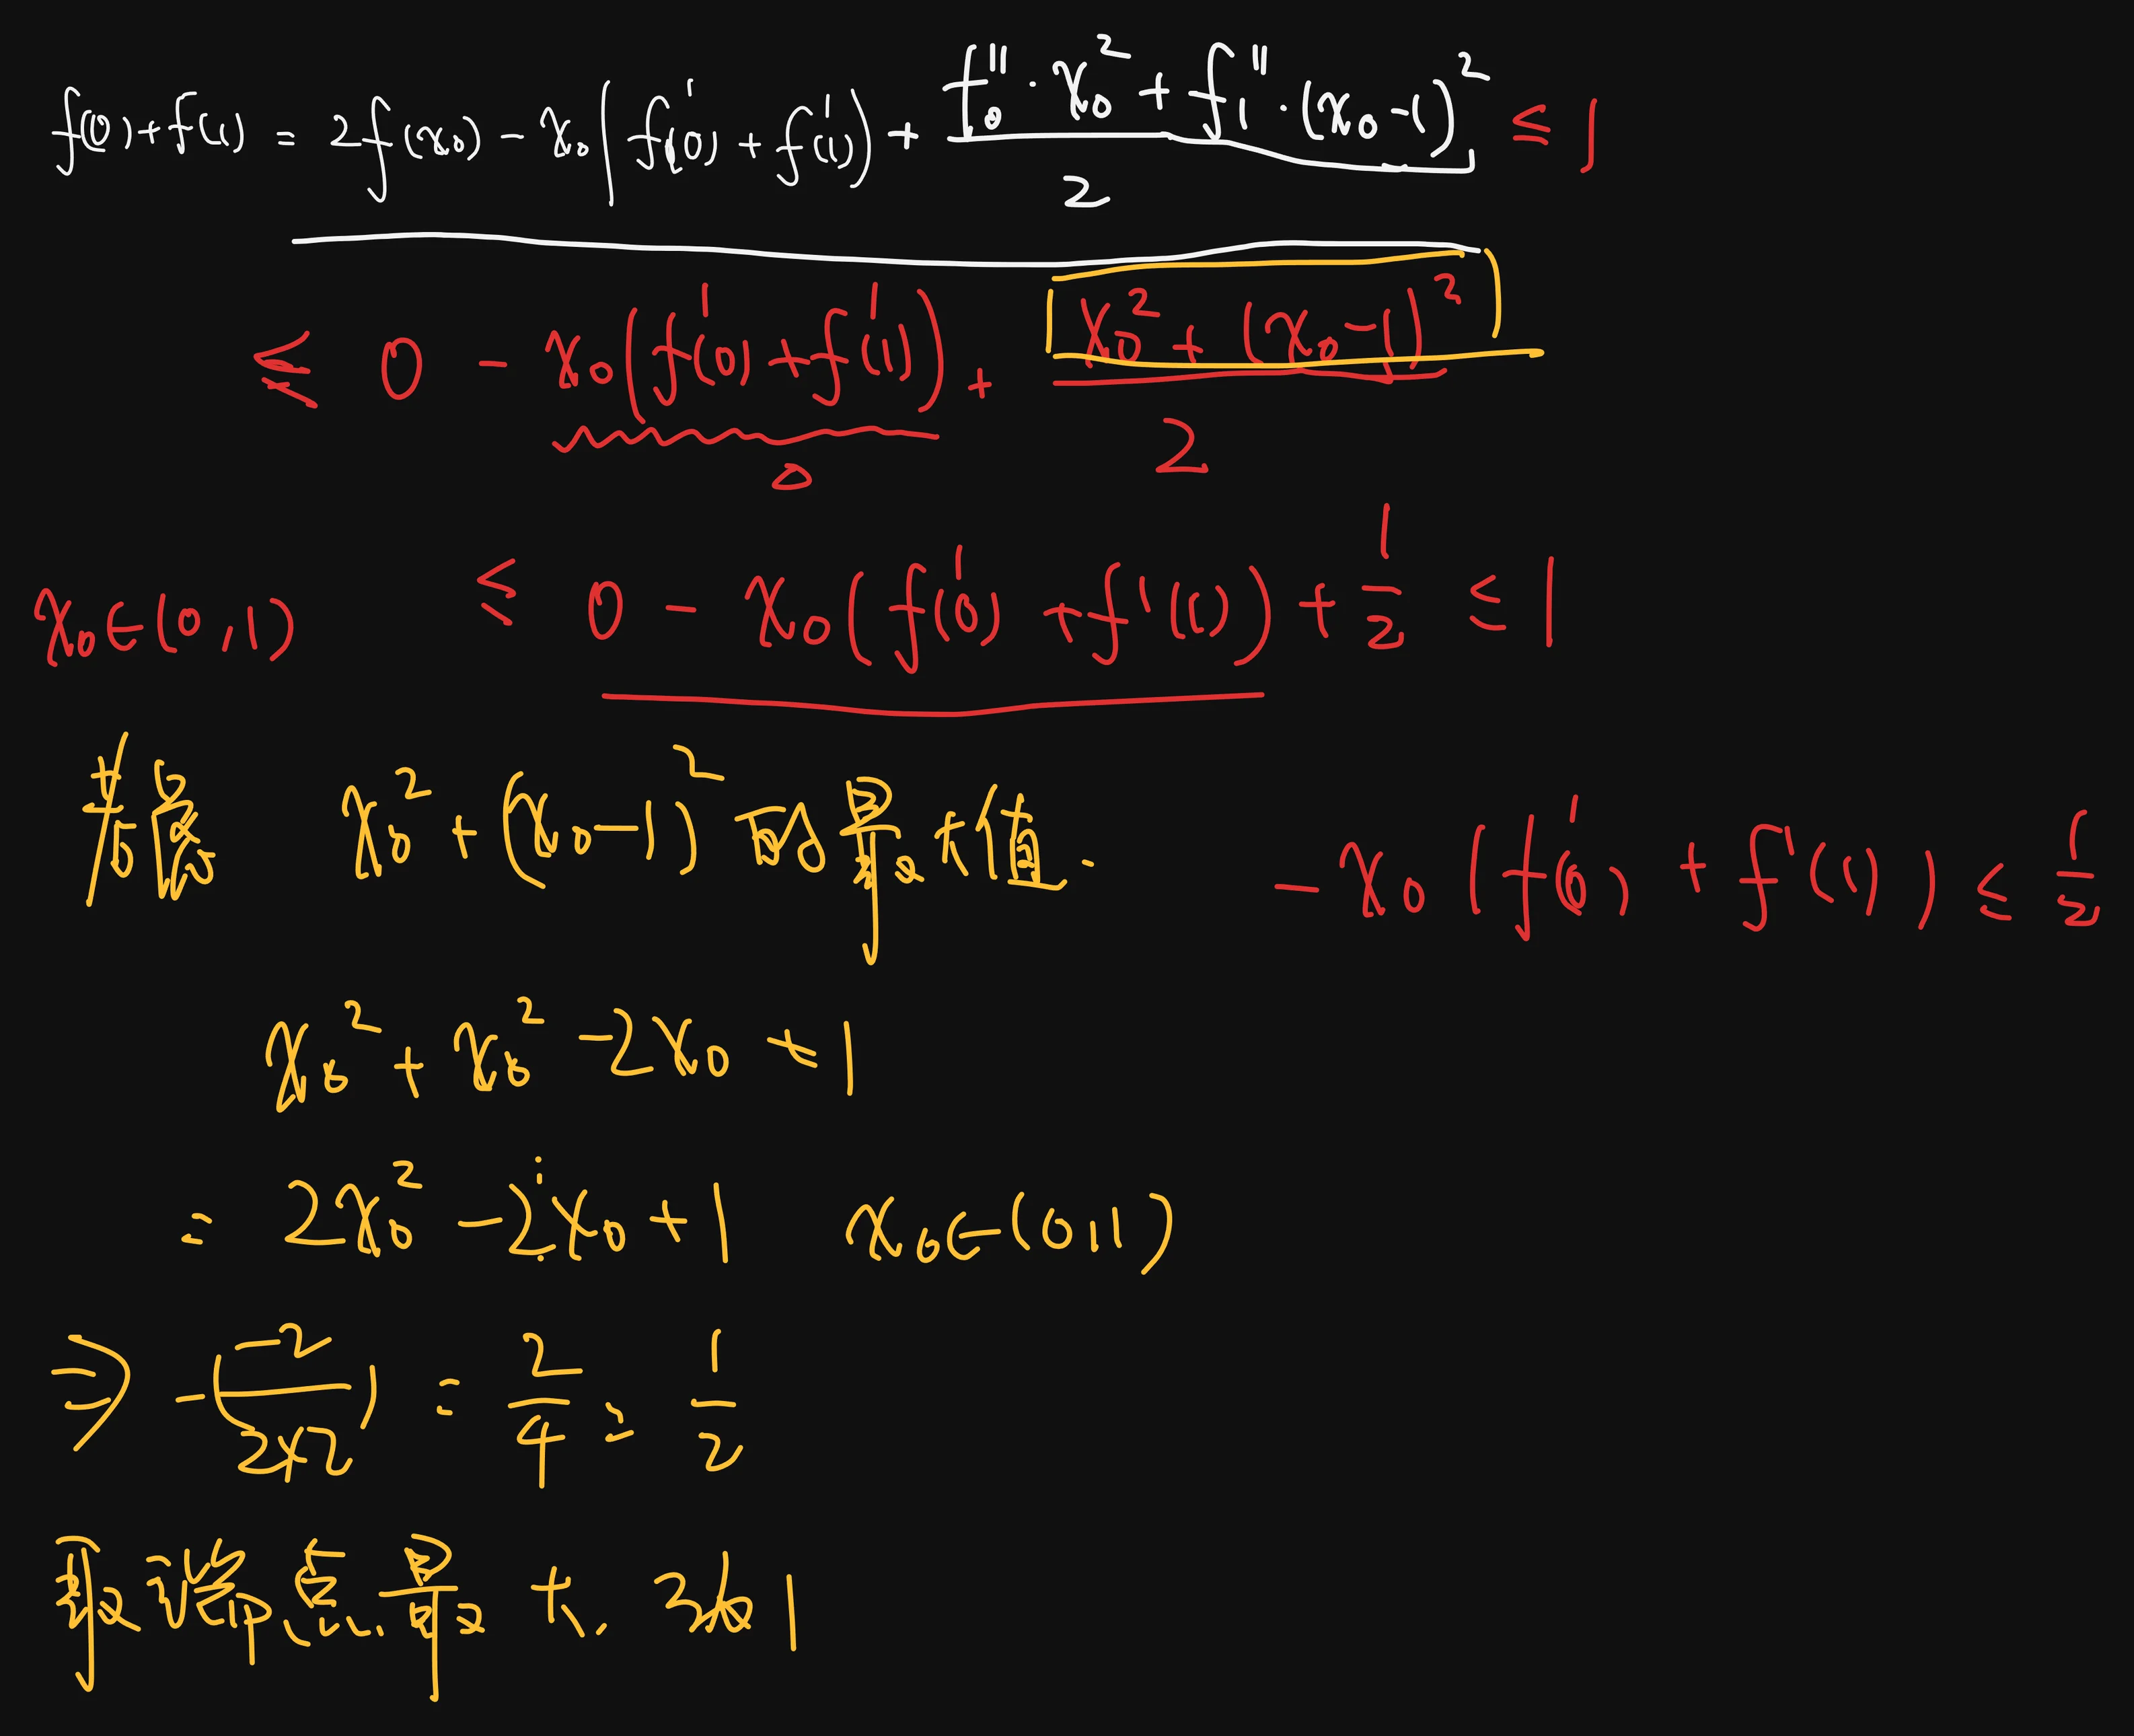 f(0) + f(1) = 2f(x₀) - x₀(f'(0) + f'(1)) + (f₀''·x₀² + f₁''·(x₀-1)²)/2 ≤ 1
≤ 0 - x₀(f'(0) + f'(1)) + (x₀² + (x₀-1)²)/2
0
x₀∈(0,1) ≤ 0 - x₀(f'(0) + f'(1)) + 1/2 ≤ 1
x₀² + (x₀-1)² 的最大值.
-x₀(f'(0) + f'(1)) ≤ 1/2
x₀² + x₀² - 2x₀ + 1
= 2x₀² - 2x₀ + 1 x₀∈(0,1)
⇒ -(-2/(2×2)) = 2/4 = 1/2
最大 1